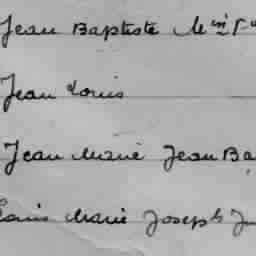 Jean Baptiste
Jean Louis
Jean Marie Jean Ba
Louis Marie Joseph J